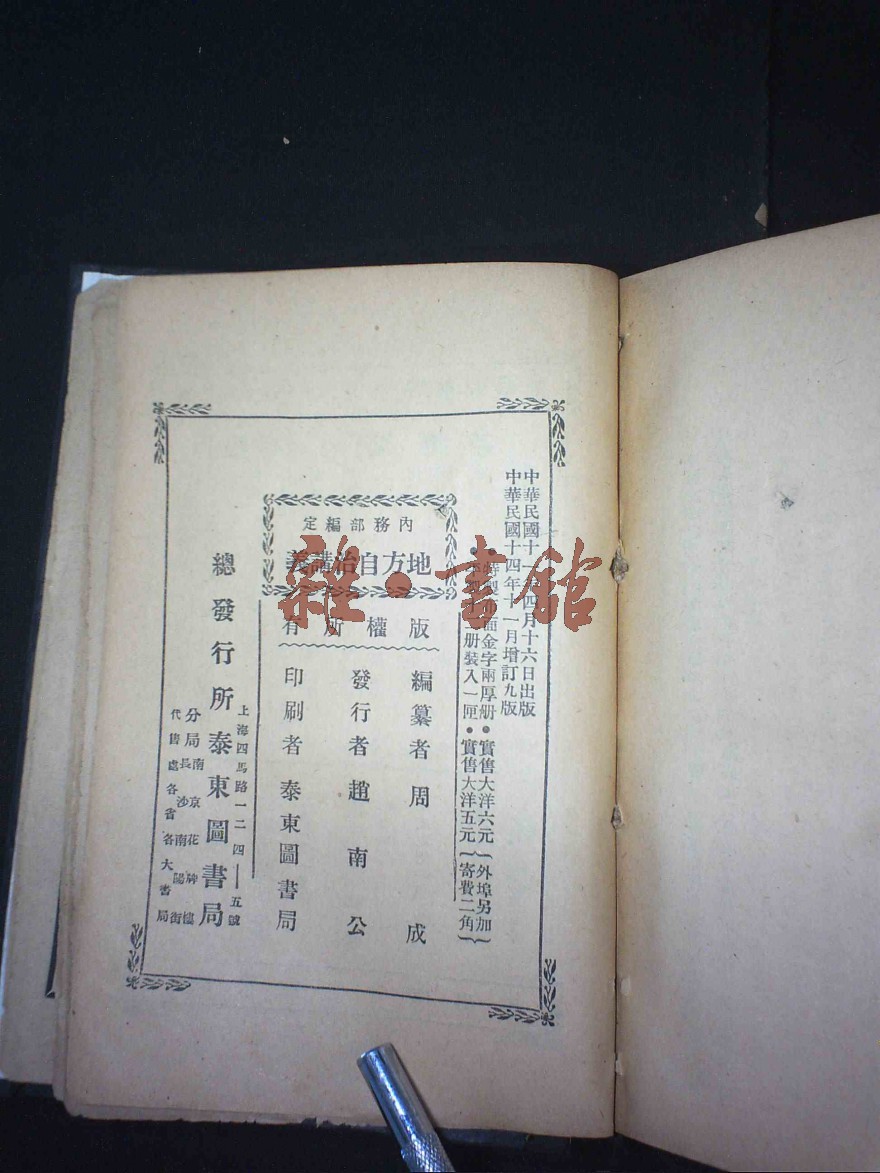 中華民國十一年四月十六日出版
中華民國十四年十一月增訂九版
●特製 面金字兩厚册●實售大洋六元
● 册裝入一匣●實售大洋五元
外埠另加
寄費二角
內務部編定
地方自治講義
版權所有
編纂者周成
發行者趙南公
印刷者泰東圖書局
上海四馬路一二四——五號
總發行所泰東圖書局
分局
南京花牌樓
長沙南陽街
代售處各省各大書局
雜·書館